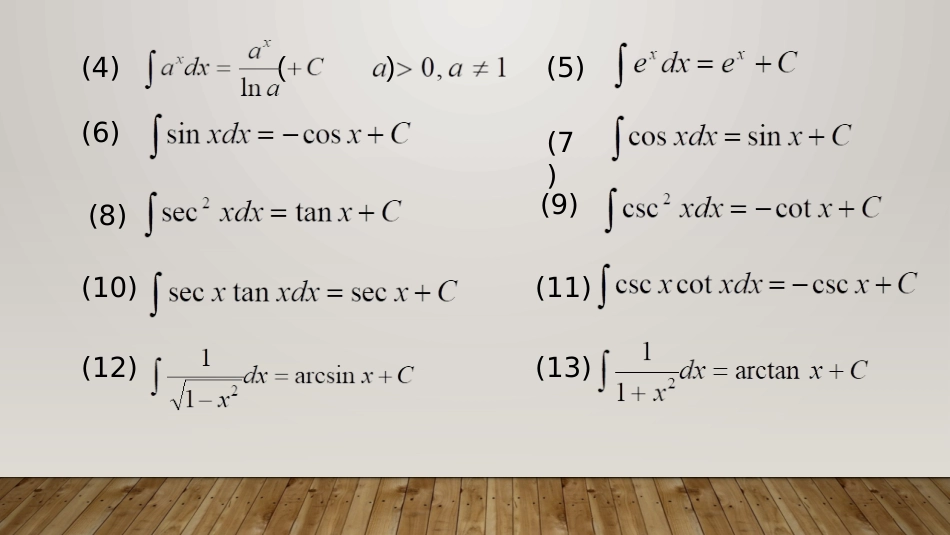 (4) ∫ a^x dx = a^x / ln a (+ C a)> 0, a ≠ 1 (5) ∫ e^x dx = e^x + C
(6) ∫ sin xdx = −cos x + C (7) ∫ cos xdx = sin x + C
(8) ∫ sec² xdx = tan x + C (9) ∫ csc² xdx = −cot x + C
(10) ∫ sec x tan xdx = sec x + C (11) ∫ csc x cot xdx = −csc x + C
(12) ∫ 1 / √(1 − x²) dx = arcsin x + C (13) ∫ 1 / (1 + x²) dx = arctan x + C